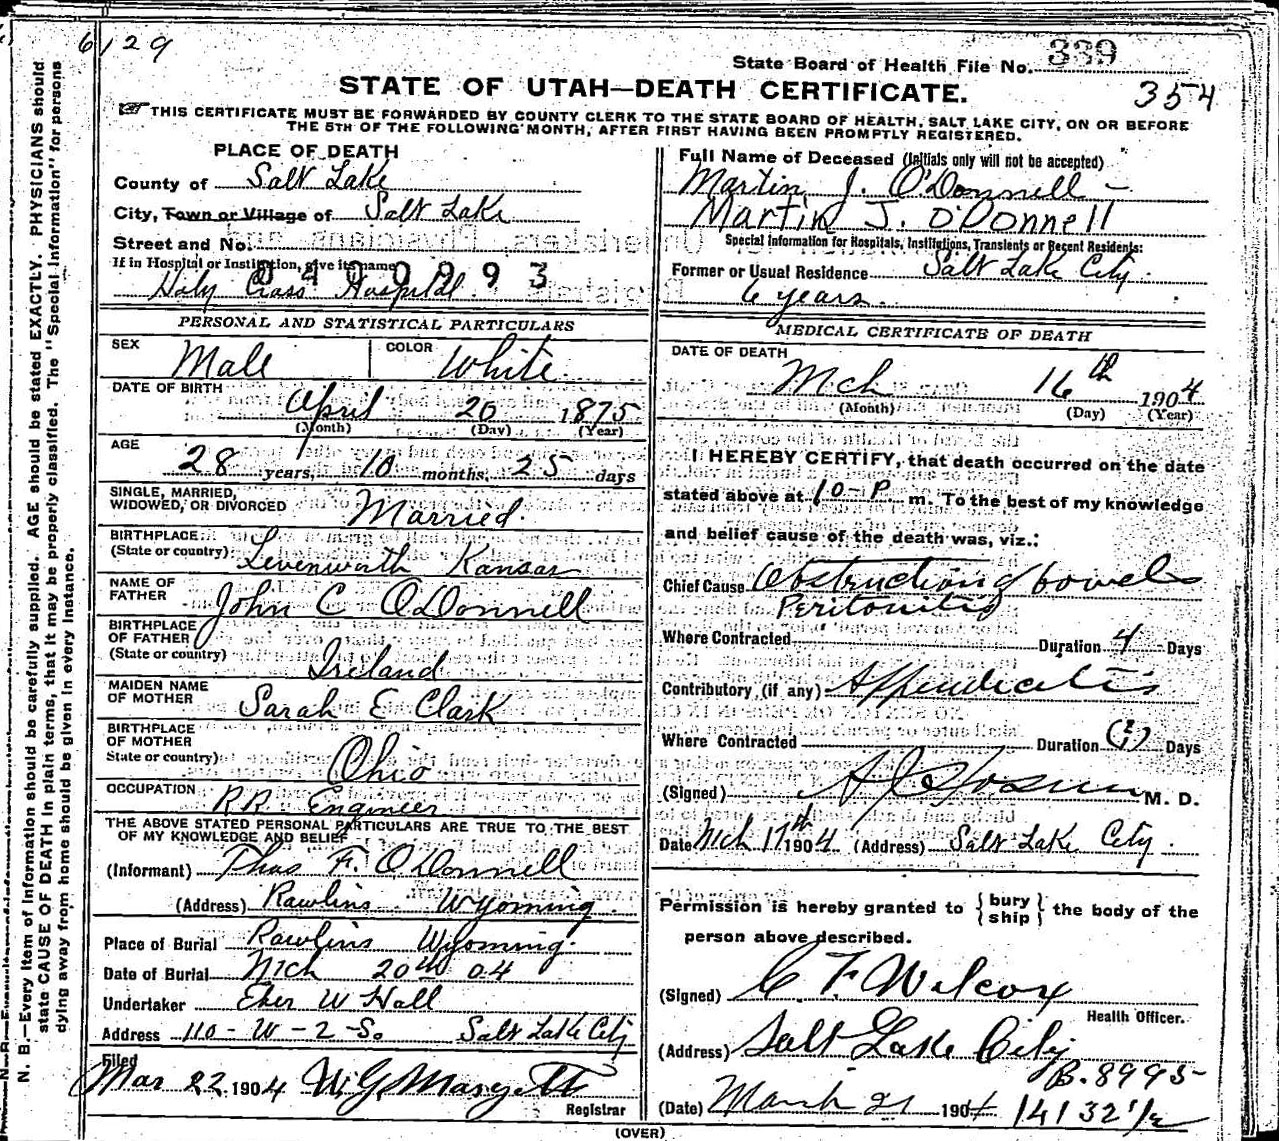 6129
State Board of Health File No. 339
354
STATE OF UTAH—DEATH CERTIFICATE.
☞ THIS CERTIFICATE MUST BE FORWARDED BY COUNTY CLERK TO THE STATE BOARD OF HEALTH, SALT LAKE CITY, ON OR BEFORE
THE 5TH OF THE FOLLOWING MONTH, AFTER FIRST HAVING BEEN PROMPTLY REGISTERED.
N. B.—Every item of information should be carefully supplied. AGE should be stated EXACTLY. PHYSICIANS should
state CAUSE OF DEATH in plain terms, that it may be properly classified. The "Special Information" for persons
dying away from home should be given in every instance.
PLACE OF DEATH
County of Salt Lake
City, Town or Village of Salt Lake
Street and No.
If in Hospital or Institution, give its name
Holy Cross Hospital
PERSONAL AND STATISTICAL PARTICULARS
SEX Male COLOR White
DATE OF BIRTH
April 20 1875
(Month) (Day) (Year)
AGE
28 years, 10 months, 25 days
SINGLE, MARRIED,
WIDOWED, OR DIVORCED Married.
BIRTHPLACE
(State or country) Levenworth Kansas
NAME OF
FATHER John C O'Donnell
BIRTHPLACE
OF FATHER
(State or country) Ireland
MAIDEN NAME
OF MOTHER Sarah E Clark
BIRTHPLACE
OF MOTHER
State or country) Ohio
OCCUPATION RR Engineer
THE ABOVE STATED PERSONAL PARTICULARS ARE TRUE TO THE BEST
OF MY KNOWLEDGE AND BELIEF
(Informant) Thos F. O'Donnell
(Address) Rawlins Wyoming.
Place of Burial Rawlins Wyoming.
Date of Burial Mch 20th 04
Undertaker Eber W Hall
Address 110 - W - 2 - So Salt Lake City
Filed
Mar 22 1904
Registrar
Full Name of Deceased (Initials only will not be accepted)
Martin J. O'Donnell -
Martin J. O'Donnell
Special Information for Hospitals, Institutions, Transients or Recent Residents:
Former or Usual Residence Salt Lake City.
6 years.
MEDICAL CERTIFICATE OF DEATH
DATE OF DEATH
Mch 16th 1904
(Month) (Day) (Year)
I HEREBY CERTIFY, that death occurred on the date
stated above at 10 - P m. To the best of my knowledge
and belief cause of the death was, viz.:
Chief Cause Obstruction of bowels
Peritonitis
Where Contracted Duration 4 Days
Contributory (if any) Appendicitis
Where Contracted Duration Days
(Signed) M. D.
Date Mch 17th 1904 (Address) Salt Lake City.
Permission is hereby granted to { bury
ship } the body of the
person above described.
(Signed) C. F. Wilcox
Health Officer.
(Address) Salt Lake City
B. 8995
(Date) March 21 1904 14132 1/2
(OVER)